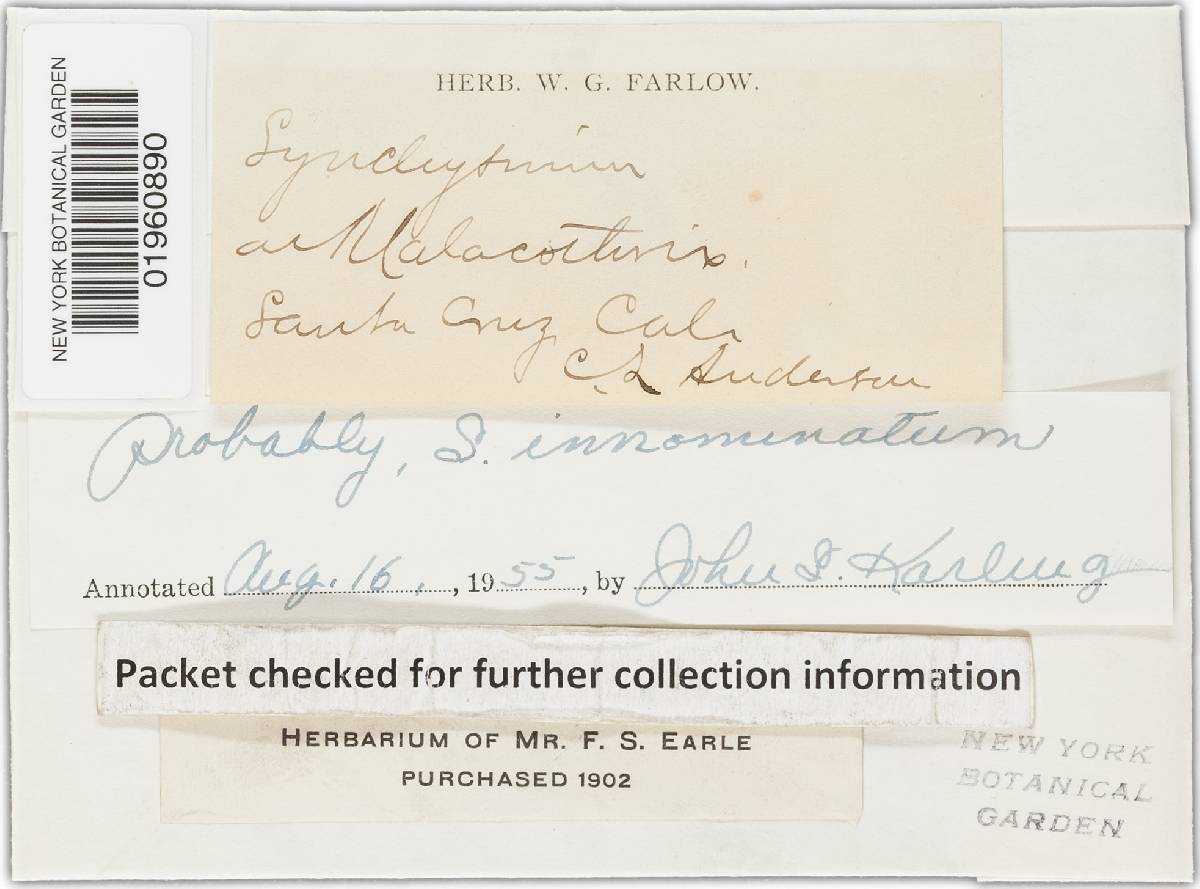 NEW YORK BOTANICAL GARDEN
01960890
HERB. W. G. FARLOW.
Synchytrium
on Malacothrix.
Santa Cruz Cala
C. L Anderson
Probably, S. innominatum
Annotated Aug. 16, , 1955, by John S. Karling
Packet checked for further collection information
HERBARIUM OF MR. F. S. EARLE
PURCHASED 1902
NEW YORK
BOTANICAL
GARDEN